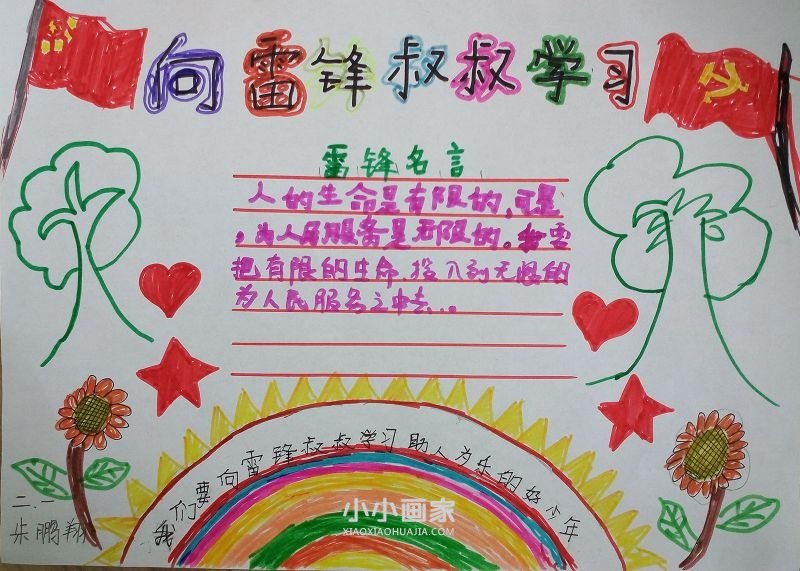 向雷锋叔叔学习
雷锋名言
人的生命是有限的,可是
,为人民服务是无限的。我要
把有限的生命,投入到无限的
为人民服务之中去...
我们要向雷锋叔叔学习助人为乐的好少年
二.一
朱鹏翔
小小画家
XIAOXIAOHUAJIA.COM